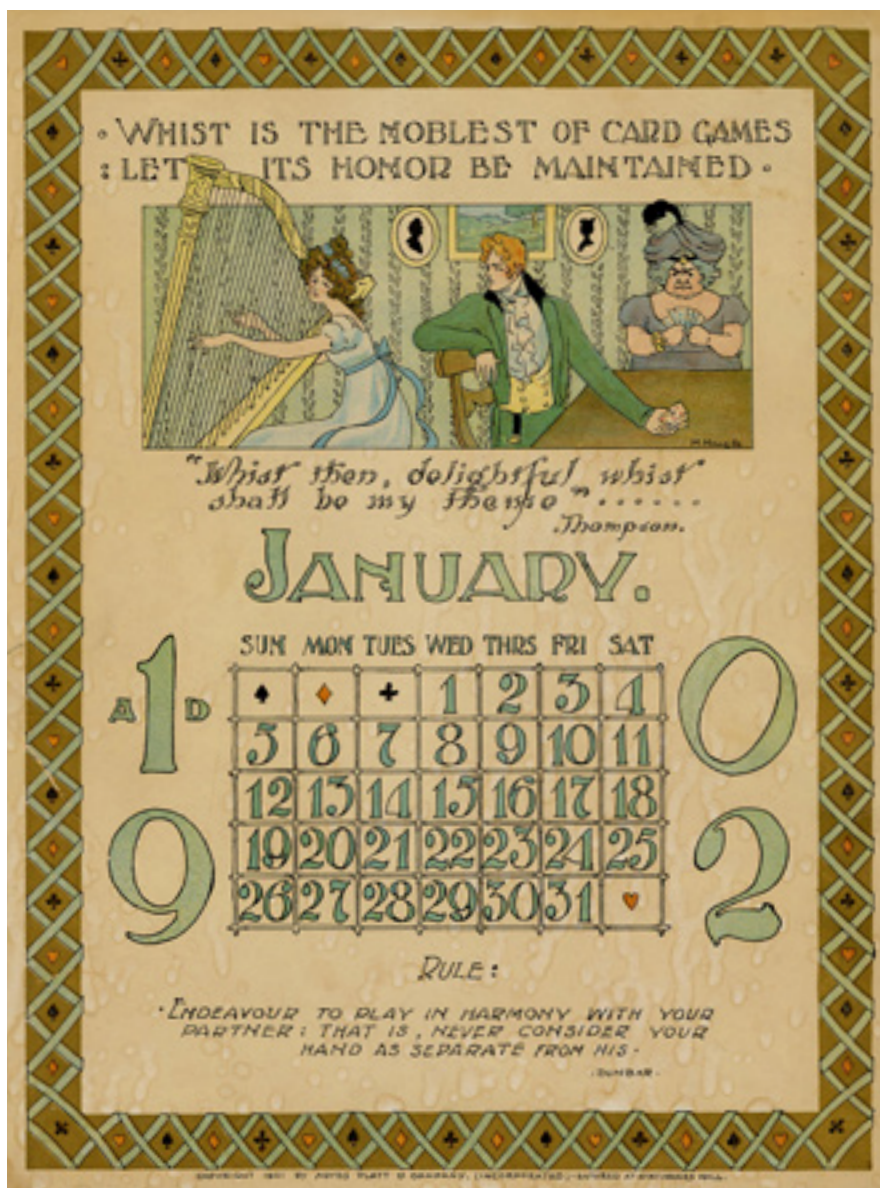 · WHIST IS THE NOBLEST OF CARD GAMES
: LET ITS HONOR BE MAINTAINED ·
"Whist then, delightful whist
shall be my theme" ......
.Thompson.
JANUARY.
SUN MON TUES WED THRS FRI SAT
A 1 D 0
1 2 3 4
5 6 7 8 9 10 11
12 13 14 15 16 17 18
9 2
19 20 21 22 23 24 25
26 27 28 29 30 31
RULE:
· ENDEAVOUR TO PLAY IN HARMONY WITH YOUR
PARTNER: THAT IS, NEVER CONSIDER YOUR
HAND AS SEPARATE FROM HIS ·
· DUNBAR ·
COPYRIGHT 1901 BY